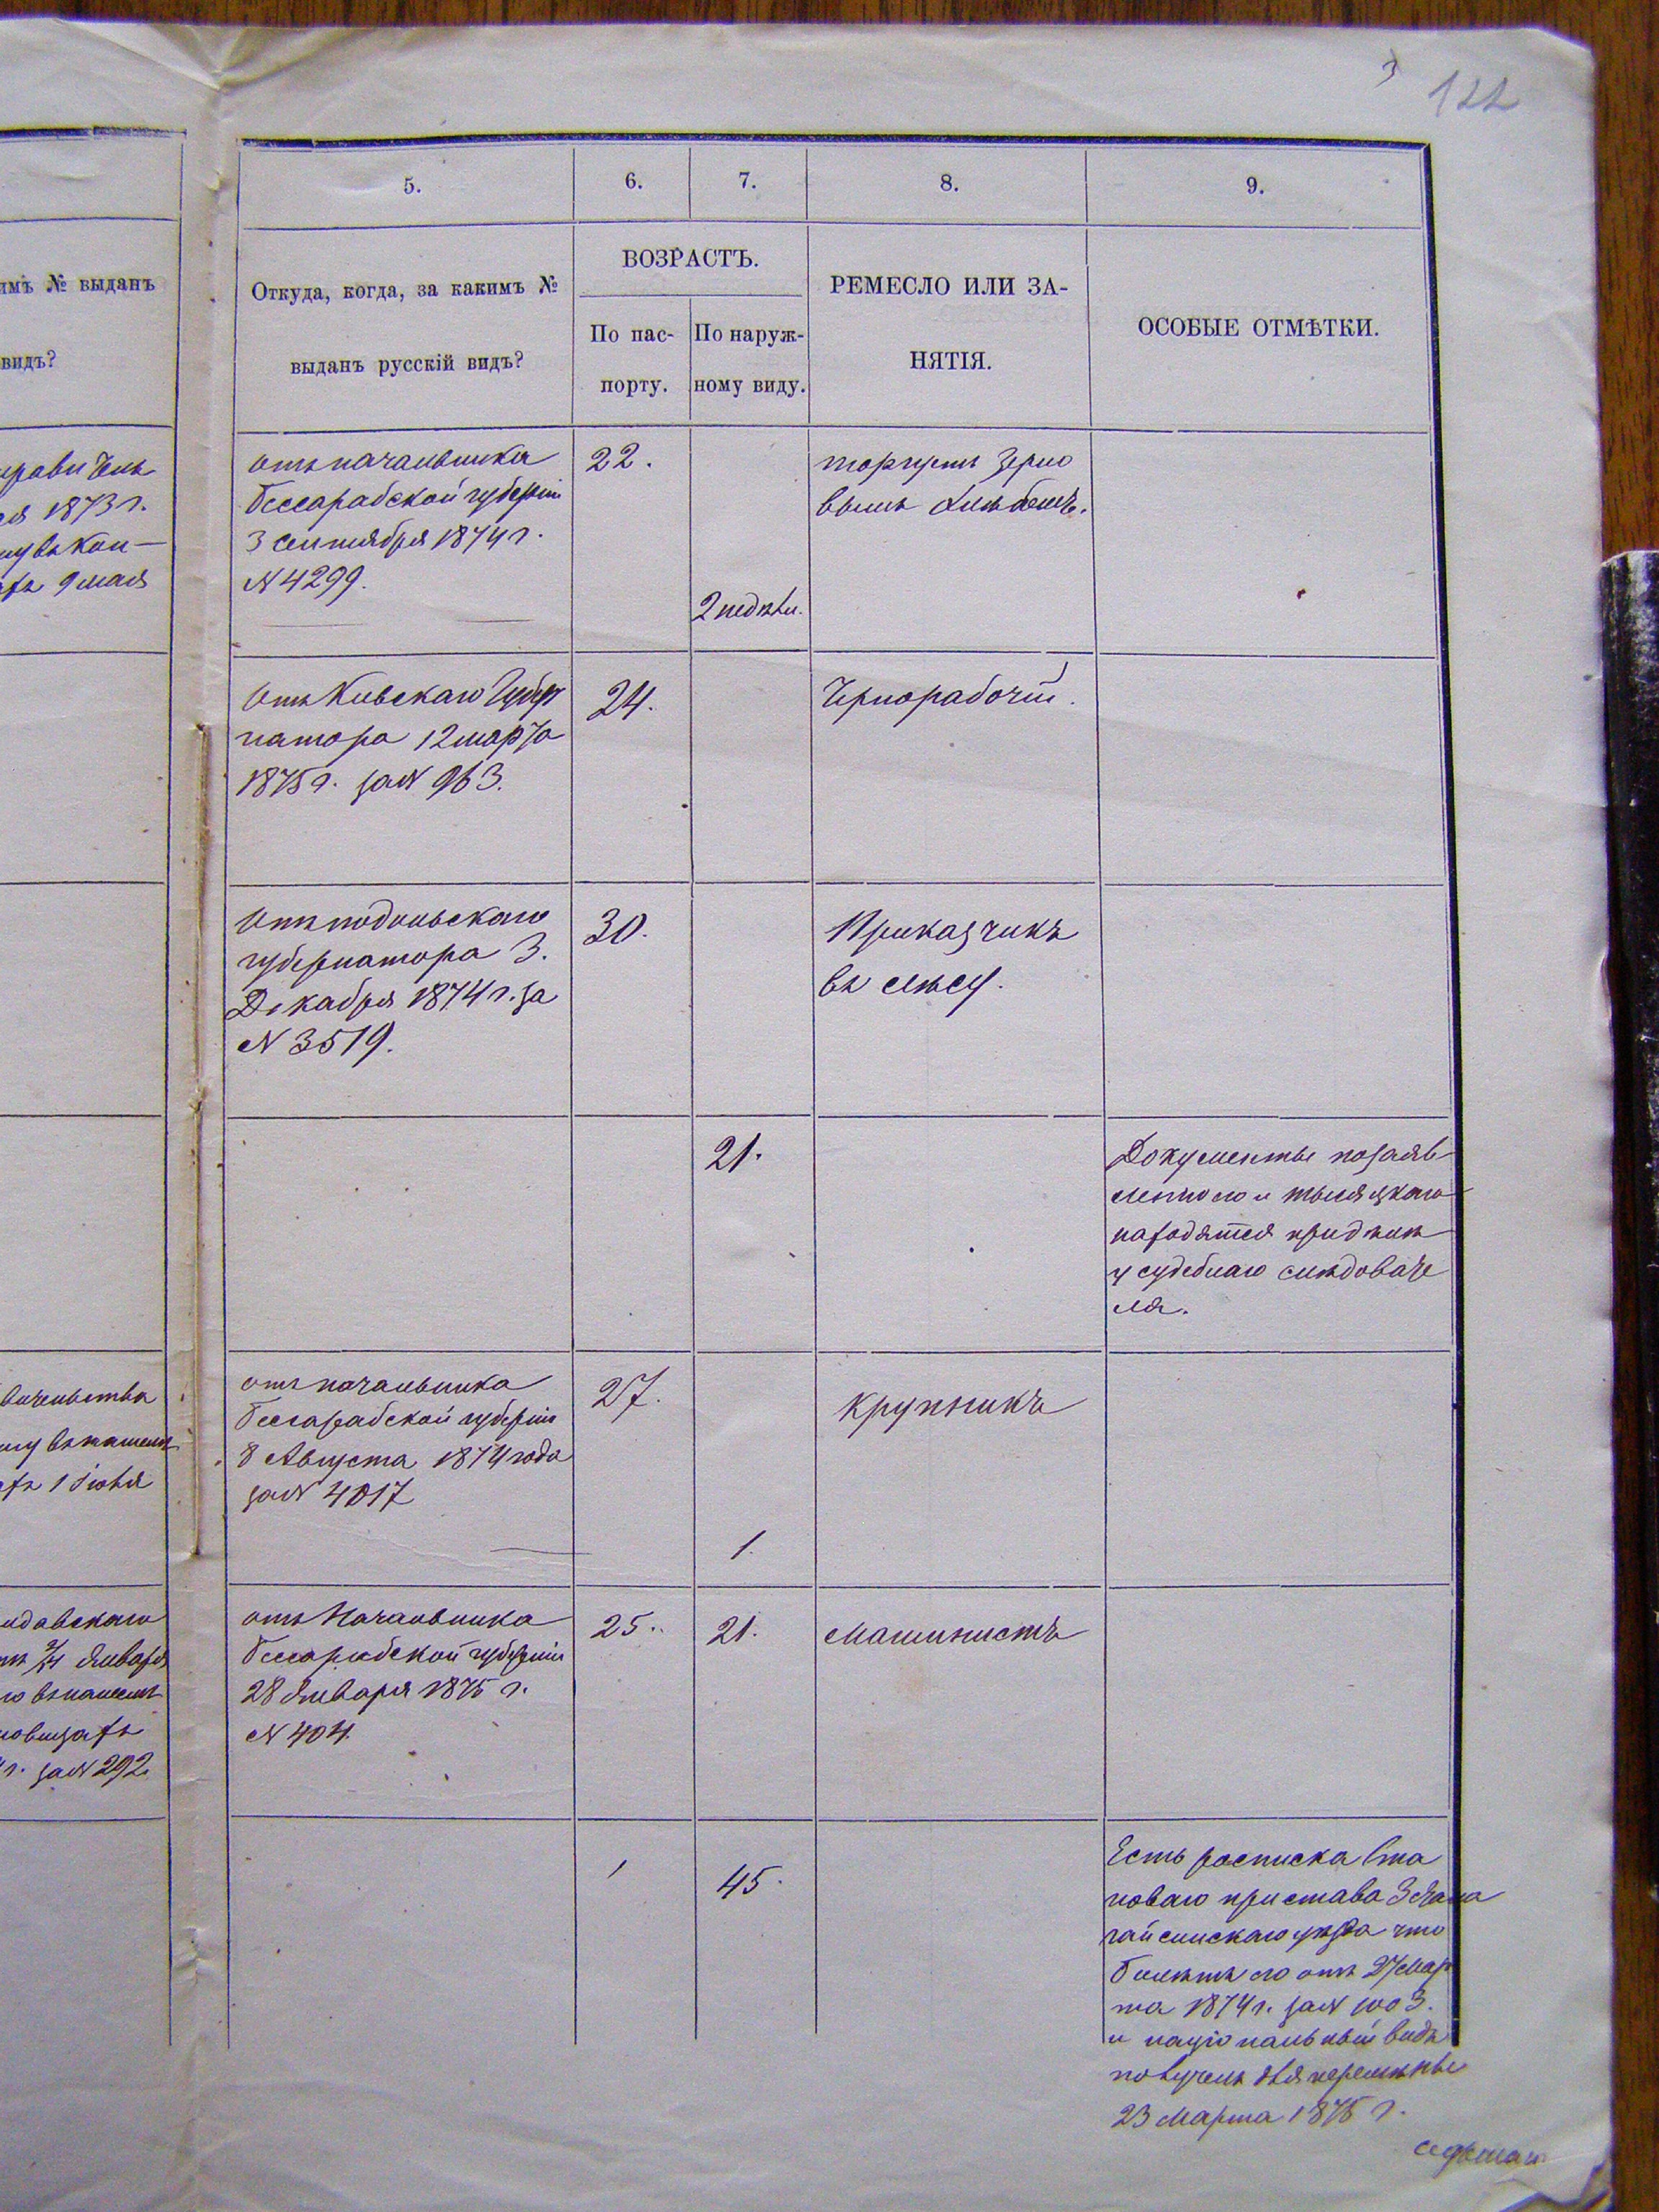 122
5.
6.
7.
8.
9.
имъ № выданъ
видъ?
Откуда, когда, за какимъ №
выданъ русскій видъ?
ВОЗРАСТЪ.
По пас-
порту.
По наруж-
ному виду.
РЕМЕСЛО ИЛИ ЗА-
НЯТІЯ.
ОСОБЫЕ ОТМѢТКИ.
1873 г.
9 мая
отъ начальника
Бессарабской губерніи
3 сентября 1874 г.
N 4299.
22.
2 недѣли.
торгуетъ зерно
вымъ хлѣбомъ.
Отъ Кивскаго Губер
натора 12 марта
1875 г. за N 963.
24.
Чернорабочій.
Отъ подольскаго
губернатора 3.
Декабря 1874 г. за
N 3519.
30.
Приказчикъ
въ лѣсу.
21.
Документы по заяв
находятся при дѣлѣ
у судебнаго слѣдовате
ля.
1 Іюня
отъ начальника
бессарабской губерніи
8 Августа 1874 года
за N 4017
27.
1.
крупникъ
января
г. за N 292
отъ Начальника
Бессарабской губерніи
28 Января 1875 г.
N 404.
25.
21.
Машинистъ
45.
Есть росписка Ста
новаго пристава 3 стана
гайсинскаго уѣзда что
билетъ его отъ 27 мар
та 1874 г. за N 1003.
и національный видъ
получилъ для перемѣны
23 Марта 1875 г.